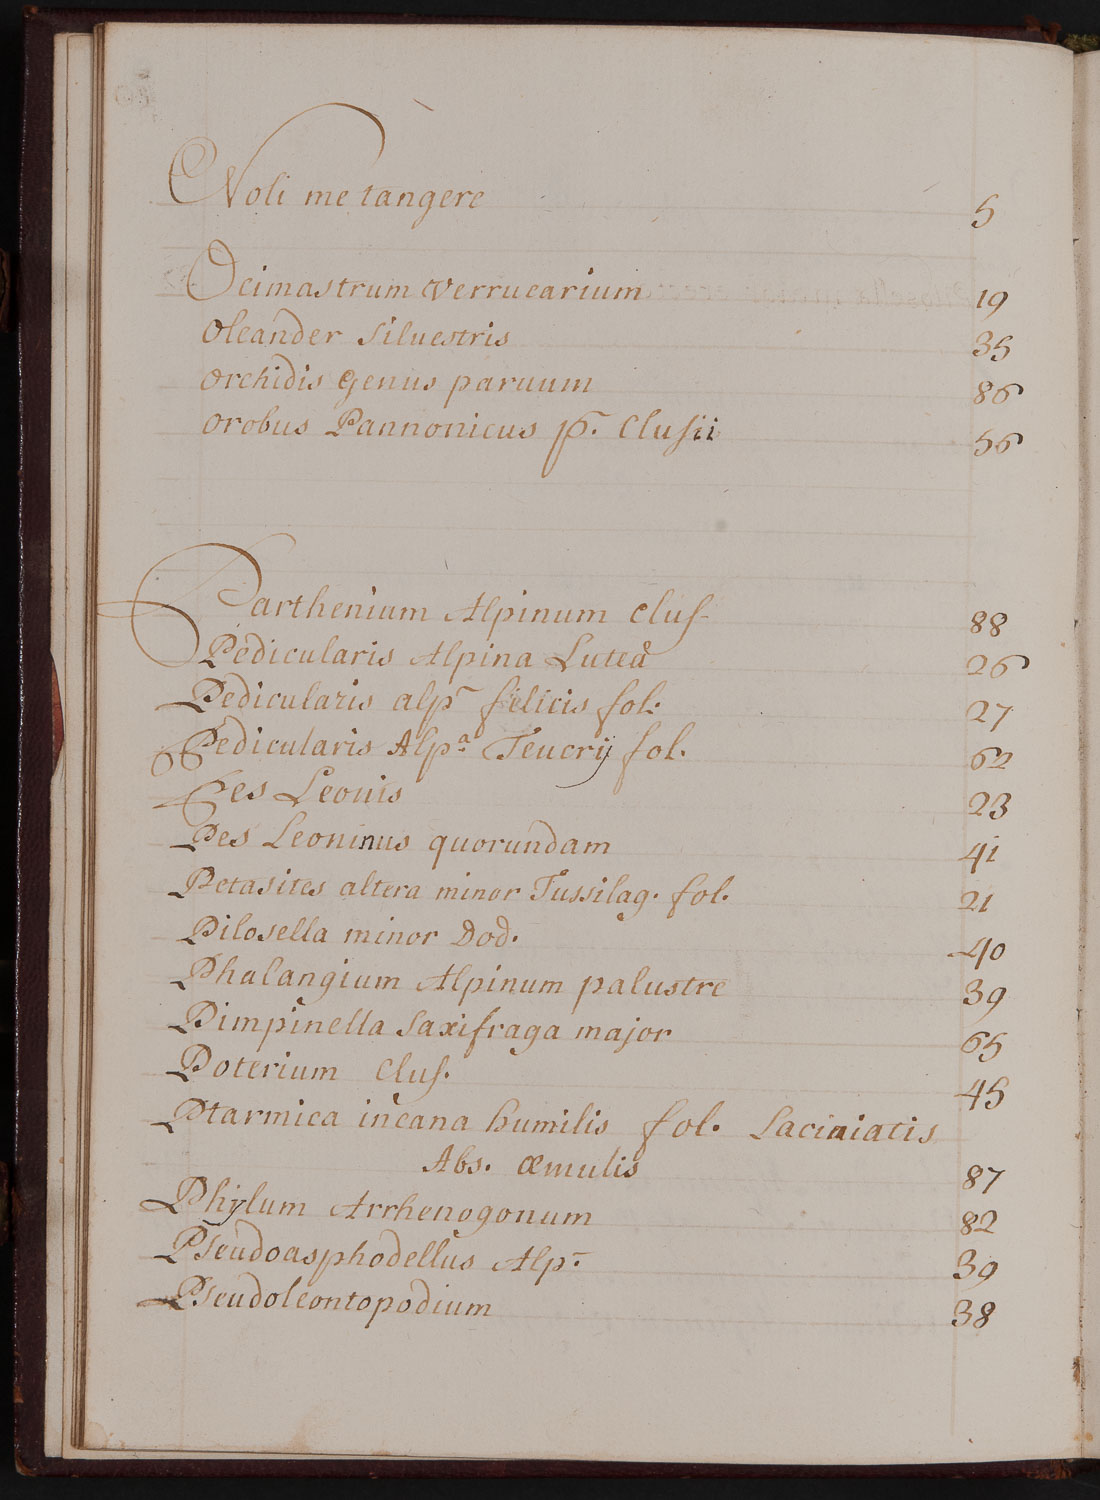 Noli me tangere 5
Ocimastrum verrucarium 19
Oleander silvestris 35
Orchidis Genus parvum 86
Orobus Pannonicus p. Clusii 56
Parthenium Alpinum Clus- 88
Pedicularis Alpina Lutea 26
Pedicularis alp. felicis fol. 27
Pedicularis Alp.a Teucrij fol. 62
Pes Leonis 23
Pes Leoninus quorundam 41
Petasites altera minor Tussilag. fol. 21
Pilosella minor Dod. 40
Phalangium Alpinum palustre 39
Pimpinella Saxifraga major 65
Poterium Clus. 45
Ptarmica incana humilis fol. Laciniatis
Abs. æmulis 87
Phylum Arrhenogonum 82
Pseudoasphodellus Alp. 39
Pseudoleontopodium 38